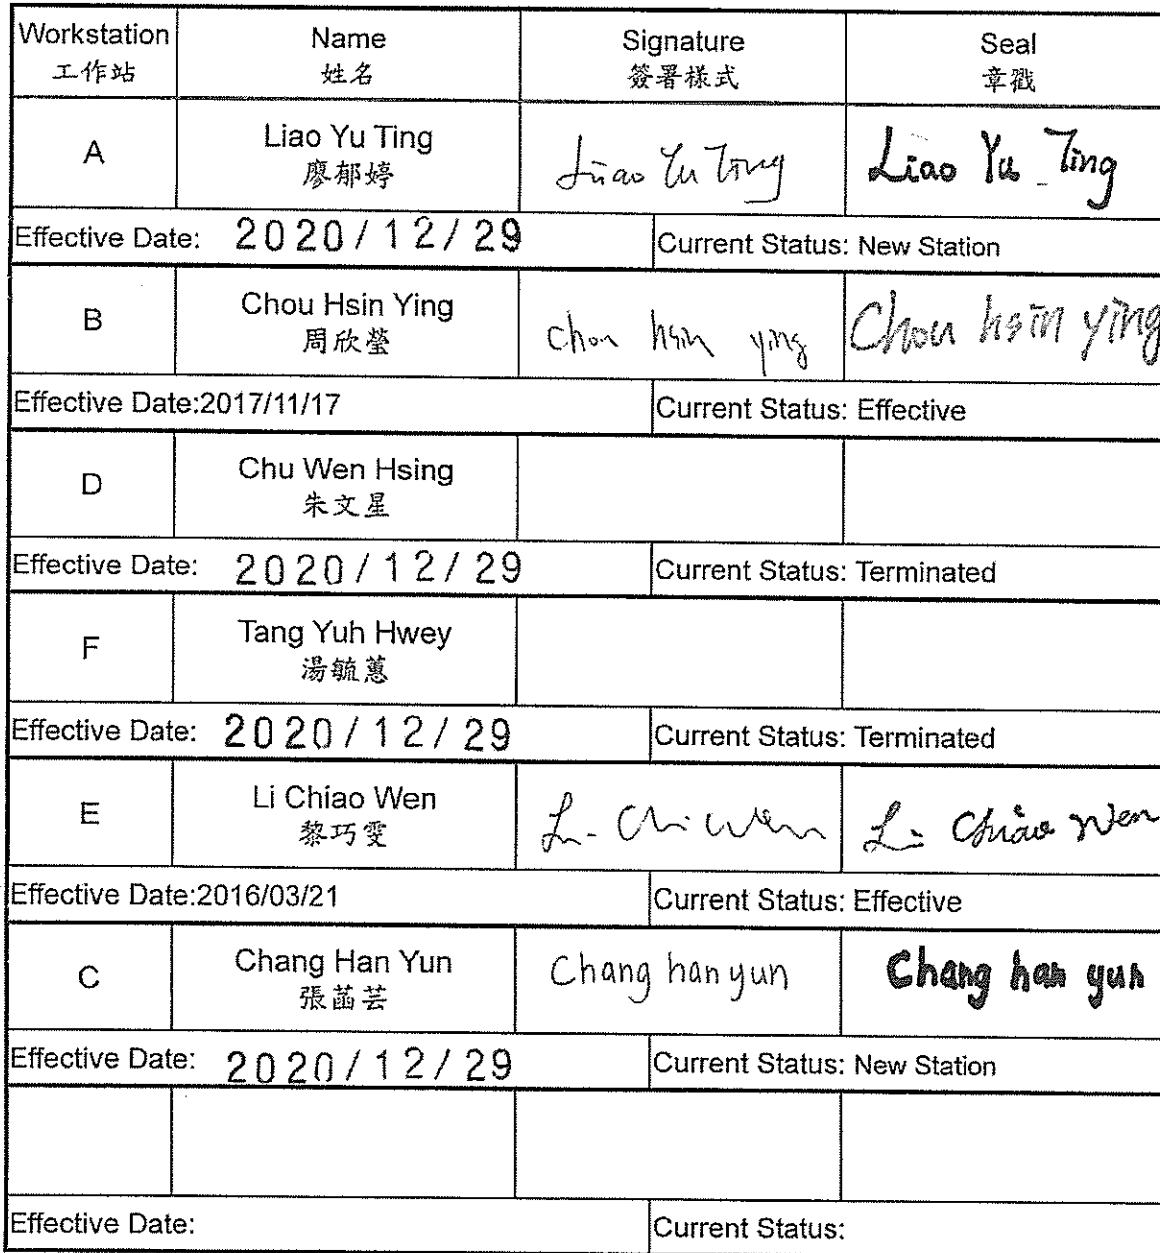 Workstation Name Signature Seal
工作站 姓名 簽署樣式 章戳
A Liao Yu Ting Liao Yu Ting Liao Yu Ting
廖郁婷
Effective Date: 2020/12/29 Current Status: New Station
B Chou Hsin Ying Chou hsin ying Chou hsin ying
周欣瑩
Effective Date:2017/11/17 Current Status: Effective
D Chu Wen Hsing
朱文星
Effective Date: 2020/12/29 Current Status: Terminated
F Tang Yuh Hwey
湯毓蕙
Effective Date: 2020/12/29 Current Status: Terminated
E Li Chiao Wen Li Chiao Wen
黎巧雯
Effective Date:2016/03/21 Current Status: Effective
C Chang Han Yun Chang han yun Chang han yun
張菡芸
Effective Date: 2020/12/29 Current Status: New Station
Effective Date: Current Status: